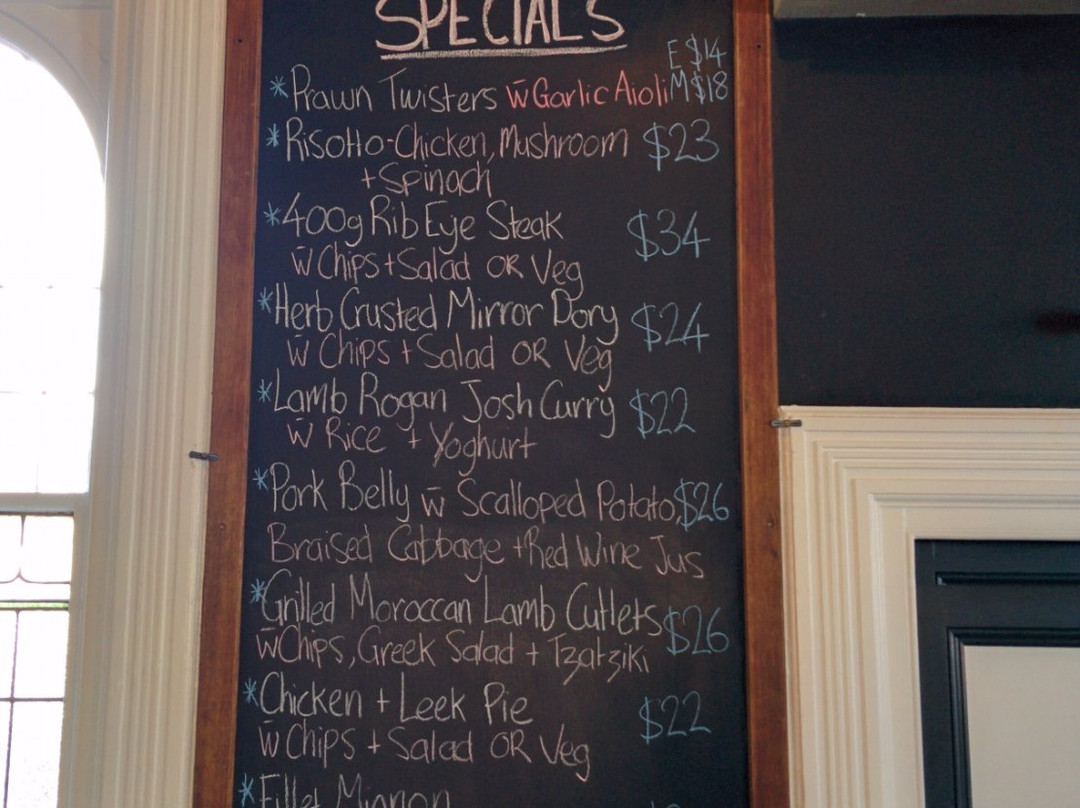 SPECIALS
E $14
*Prawn Twisters w̄ Garlic Aioli M $18
*Risotto-Chicken, Mushroom $23
+ Spinach
*400g Rib Eye Steak $34
w̄ Chips + Salad OR Veg
*Herb Crusted Mirror Dory $24
w̄ Chips + Salad OR Veg
*Lamb Rogan Josh Curry $22
w̄ Rice + Yoghurt
*Pork Belly w̄ Scalloped Potato, $26
Braised Cabbage + Red Wine Jus
*Grilled Moroccan Lamb Cutlets $26
w̄ Chips, Greek Salad + Tzatziki
*Chicken + Leek Pie $22
w̄ Chips + Salad OR Veg
*Fillet Mignon